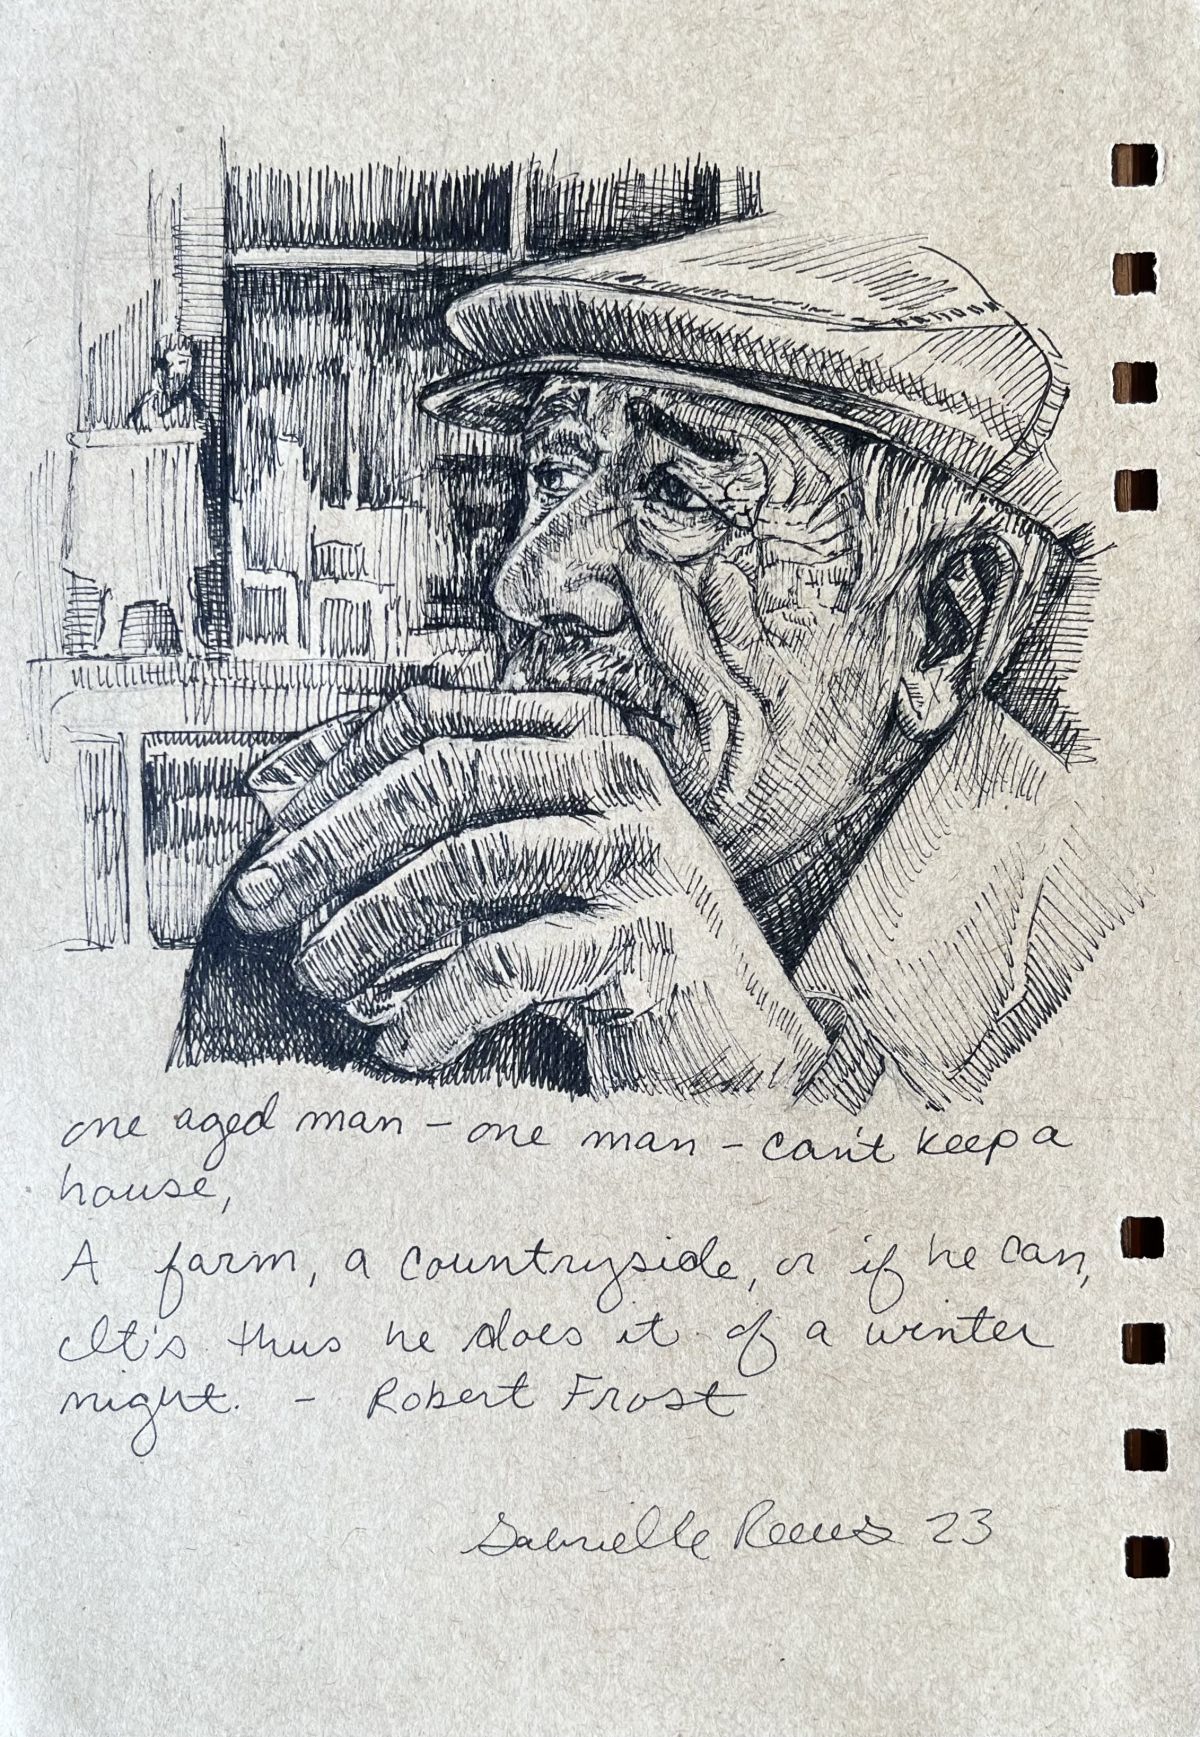 one aged man – one man – can't keep a
house,
A farm, a countryside, or if he can,
It's thus he does it of a winter
night. – Robert Frost
Gabrielle 23